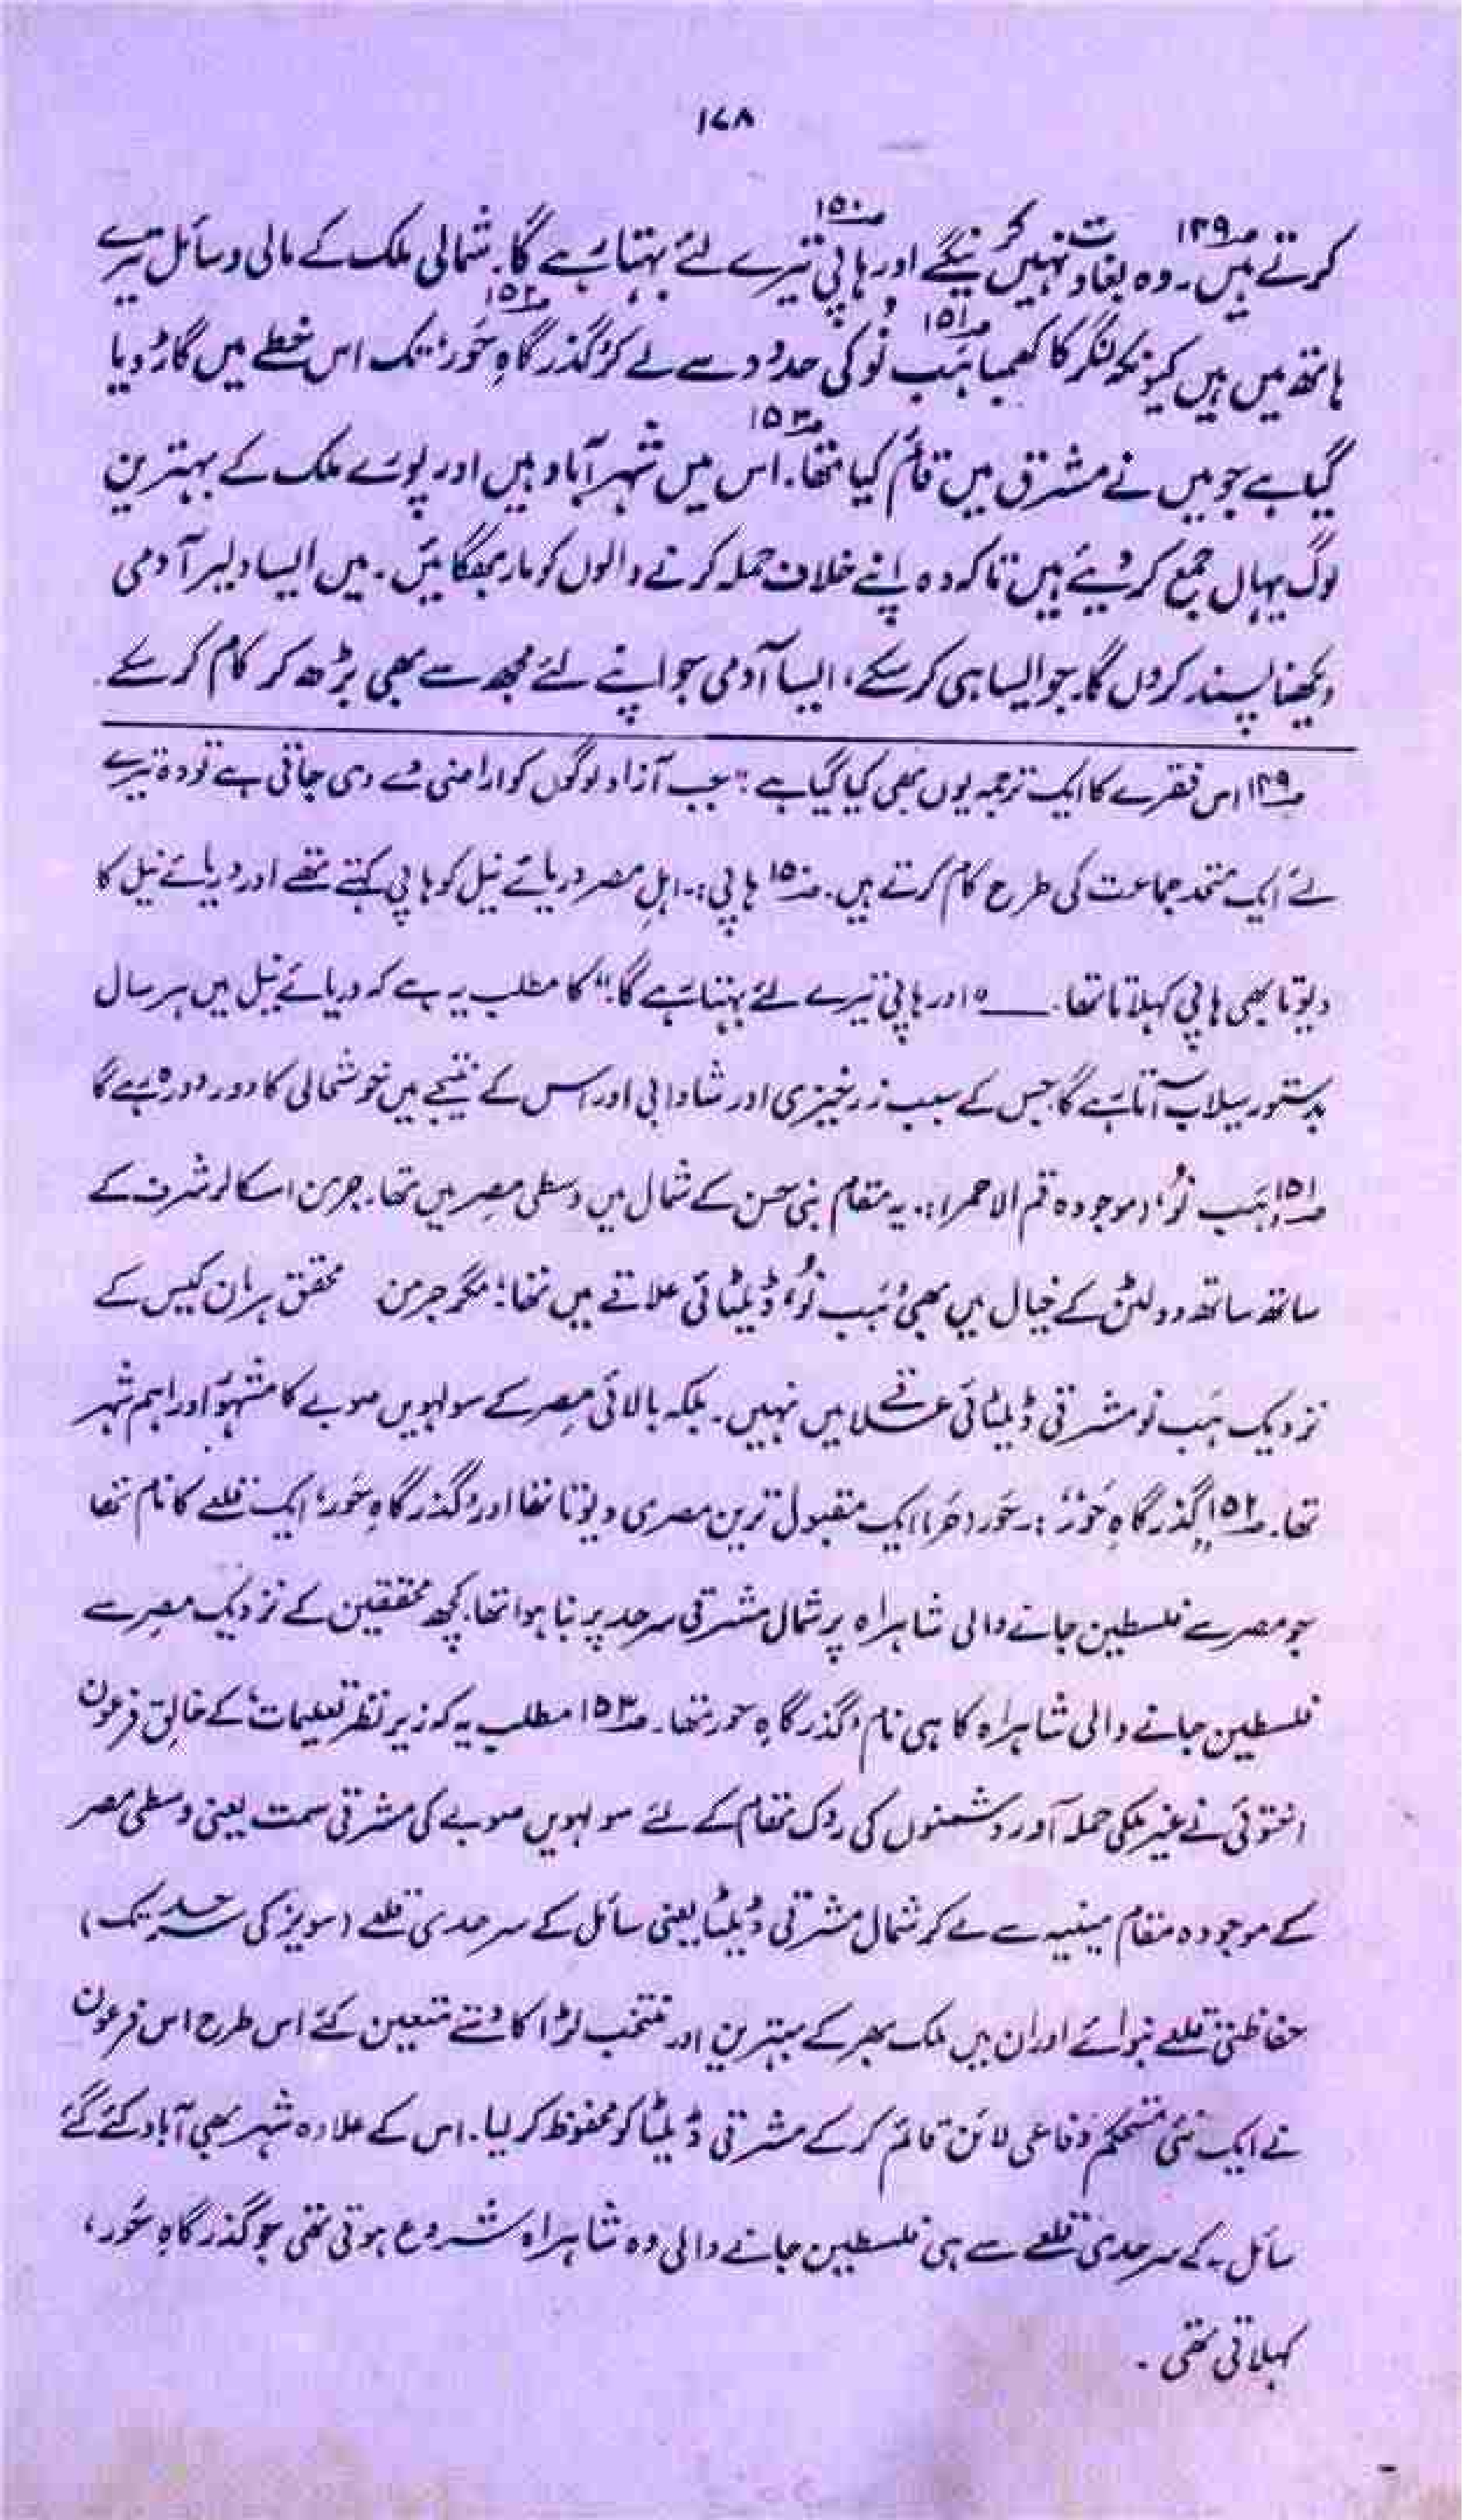 ۱۷۸
کرتے ہیں۔ ؎۱۴۹ وہ بغاوت نہیں کرینگے اور ہاپی ؎۱۵۰ تیرے لئے بہتا رہے گا۔ شمالی ملک کے مالی وسائل تیرے
ہاتھ میں ہیں کیونکہ لنگر کا کھمبا ہَب نُو ؎۱۵۱ کی حدود سے لے کر گذرگاہِ حَور ؎۱۵۲ تک اس خطے میں گاڑ دیا
گیا ہے جو میں نے مشرق میں قائم کیا تھا۔ ؎۱۵۳ اس میں شہر آباد ہیں اور پورے ملک کے بہترین
لوگ یہاں جمع کر دیئے ہیں تاکہ وہ اپنے خلاف حملہ کرنے والوں کو مار بھگائیں۔ میں ایسا دلیر آدمی
دیکھنا پسند کروں گا۔ جو ایسا ہی کر سکے، ایسا آدمی جو اپنے لئے مجھ سے بھی بڑھ کر کام کر سکے۔
؎۱۴۹ اس فقرے کا ایک ترجمہ یوں بھی کیا گیا ہے: "جب آزاد لوگوں کو اراضی دے دی جاتی ہے تو وہ تیرے
لئے ایک متحد جماعت کی طرح کام کرتے ہیں۔ ؎۱۵۰ ہاپی:۔ اہلِ مصر دریائے نیل کو ہاپی کہتے تھے اور دریائے نیل کا
دیوتا بھی ہاپی کہلاتا تھا۔ ـــــ "اور ہاپی تیرے لئے بہتا رہے گا۔" کا مطلب یہ ہے کہ دریائے نیل میں ہر سال
بدستور سیلاب آتا رہے گا جس کے سبب زرخیزی اور شادابی اور اس کے نتیجے میں خوشحالی کا دور دورہ رہے گا
؎۱۵۱ "ہَب نُو" (موجودہ قم الاحمر):۔ یہ مقام بنی حسن کے شمال میں وسطی مصر میں تھا۔ جرمن اسکالر شرف کے
ساتھ ساتھ وولٹن کے خیال میں بھی "ہَب نُو" ڈیلٹائی علاقے میں تھا؛ مگر جرمن محقق ہرمان کیس کے
نزدیک ہَب نو مشرقی ڈیلٹائی علاقے میں نہیں۔ بلکہ بالائی مصر کے سولہویں صوبے کا مشہور اور اہم شہر
تھا۔ ؎۱۵۲ "گذرگاہِ حَور":۔ حَور (حَر) ایک مقبول ترین مصری دیوتا تھا اور "گذرگاہِ حَور" ایک قلعے کا نام تھا
جو مصر سے فلسطین جانے والی شاہراہ پر شمال مشرقی سرحد پر بنا ہوا تھا۔ کچھ محققین کے نزدیک مصر سے
فلسطین جانے والی شاہراہ کا ہی نام "گذرگاہِ حور" تھا۔ ؎۱۵۳ مطلب یہ کہ زیرِ نظر "تعلیمات" کے خالق فرعون
اختوئی نے غیر ملکی حملہ آور دشمنوں کی روک تھام کے لئے سولہویں صوبے کی مشرقی سمت یعنی وسطی مصر
کے موجودہ مقام مینیہ سے لے کر شمال مشرقی ڈیلٹا یعنی سائل کے سرحدی قلعے (سویز کی سرحد تک)
حفاظتی قلعے بنوائے اور ان میں ملک بھر کے بہترین اور منتخب لڑاکا دستے متعین کئے اس طرح اس فرعون
نے ایک نئی مستحکم دفاعی لائن قائم کر کے مشرقی ڈیلٹا کو محفوظ کر لیا۔ اس کے علاوہ شہر بھی آباد کئے گئے
سائل کے سرحدی قلعے سے ہی فلسطین جانے والی وہ شاہراہ شروع ہوتی تھی جو گذرگاہِ حَور،
کہلاتی تھی۔